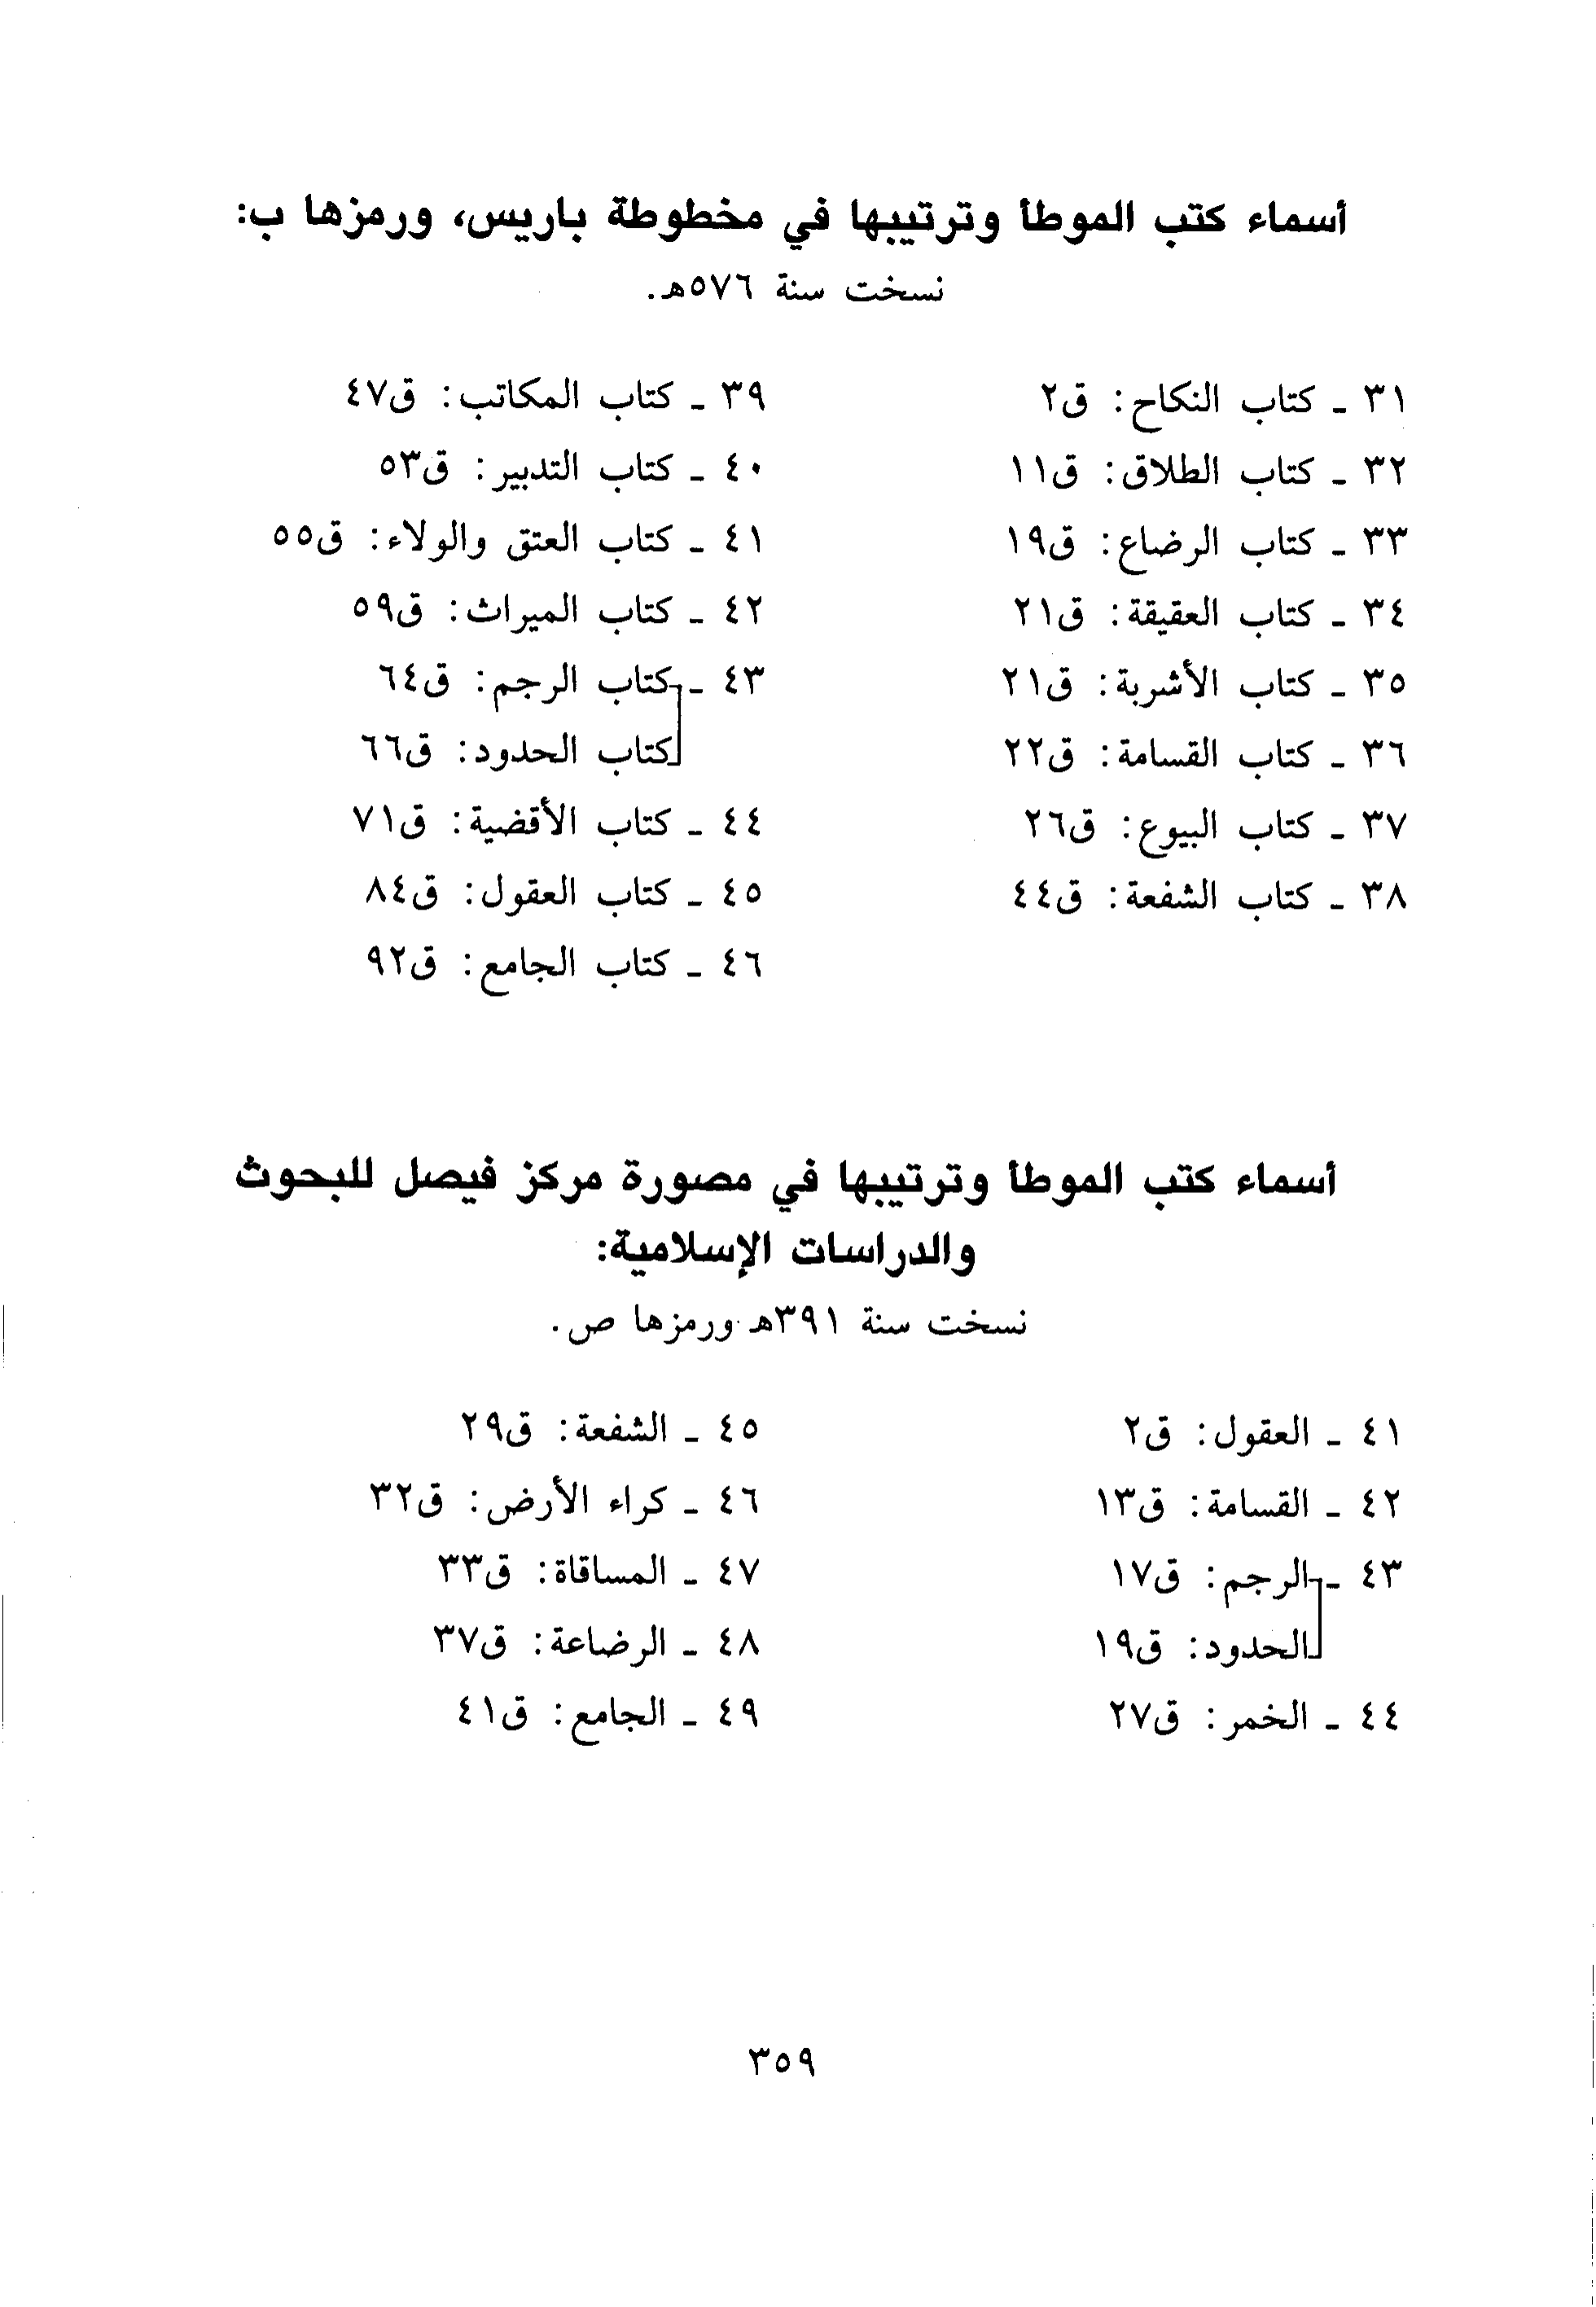 أسماء كتب الموطأ وترتيبها في مخطوطة باريس، ورمزها ب:
نسخت سنة ٥٧٦هـ.
٣١ ـ كتاب النكاح: ق٢
٣٢ ـ كتاب الطلاق: ق١١
٣٣ ـ كتاب الرضاع: ق١٩
٣٤ ـ كتاب العقيقة: ق٢١
٣٥ ـ كتاب الأشربة: ق٢١
٣٦ ـ كتاب القسامة: ق٢٢
٣٧ ـ كتاب البيوع: ق٢٦
٣٨ ـ كتاب الشفعة: ق٤٤
٣٩ ـ كتاب المكاتب: ق٤٧
٤٠ ـ كتاب التدبير: ق٥٣
٤١ ـ كتاب العتق والولاء: ق٥٥
٤٢ ـ كتاب الميراث: ق٥٩
٤٣ ـ كتاب الرجم: ق٦٤
كتاب الحدود: ق٦٦
٤٤ ـ كتاب الأقضية: ق٧١
٤٥ ـ كتاب العقول: ق٨٤
٤٦ ـ كتاب الجامع: ق٩٢
أسماء كتب الموطأ وترتيبها في مصورة مركز فيصل للبحوث
والدراسات الإسلامية:
نسخت سنة ٣٩١هـ ورمزها ص.
٤١ ـ العقول: ق٢
٤٢ ـ القسامة: ق١٣
٤٣ ـ الرجم: ق١٧
الحدود: ق١٩
٤٤ ـ الخمر: ق٢٧
٤٥ ـ الشفعة: ق٢٩
٤٦ ـ كراء الأرض: ق٣٢
٤٧ ـ المساقاة: ق٣٣
٤٨ ـ الرضاعة: ق٣٧
٤٩ ـ الجامع: ق٤١
٣٥٩